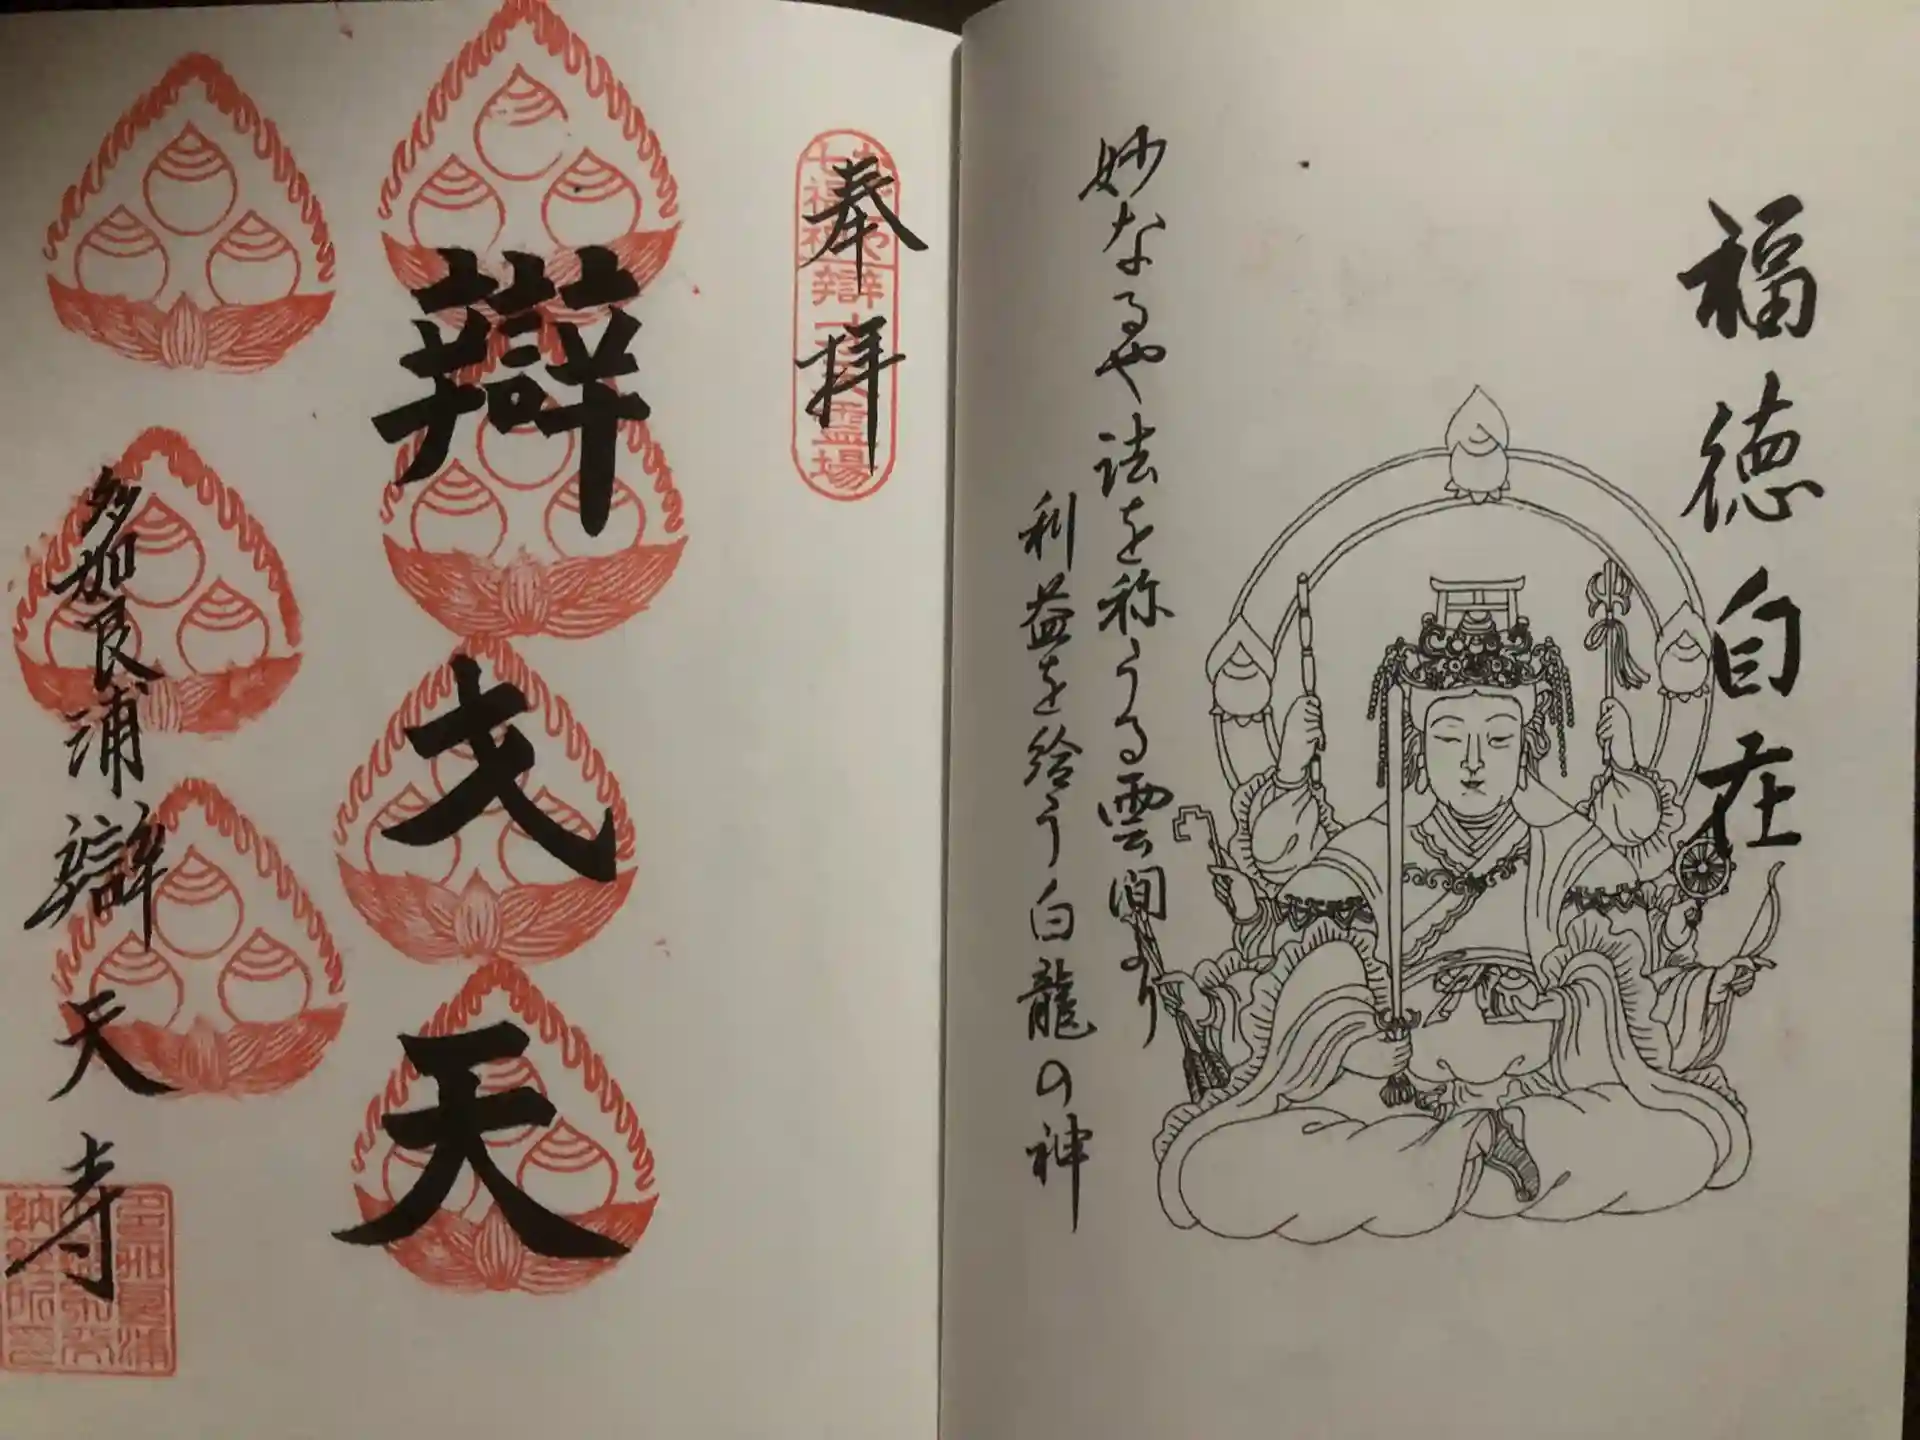 福徳自在
妙なるや法を称うる雲間より
利益を給う白龍の神
奉拝
辯才天
多加良浦辯天寺